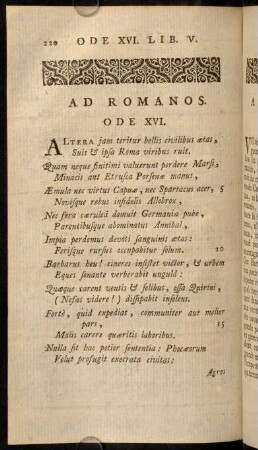 220 ODE XVI. LIB. V.
AD ROMANOS.
ODE XVI.
ALTERA jam teritur bellis civilibus ætas,
Suis & ipsa Roma viribus ruit.
Quam neque finitimi valuerunt perdere Marsi,
Minacis aut Etrusca Porsenæ manus,
Æmula nec virtus Capuæ, nec Spartacus acer, 5
Novisque rebus infidelis Allobrox,
Nec fera cæruleâ domuit Germania pube,
Parentibusque abominatus Annibal,
Impia perdemus devoti sanguinis ætas:
Ferisque rursus occupabitur solum. 10
Barbarus heu! cineres insistet victor, & urbem
Eques sonante verberabit ungulâ:
Quæque carent ventis & solibus, ossa Quirini,
(Nefas videre!) dissipabit insolens.
Fortè, quid expediat, communiter aut melior
pars, 15
Malis carere quæritis laboribus.
Nulla sit hac potior sententia: Phocæorum
Velut profugit execrata civitas:
Agros